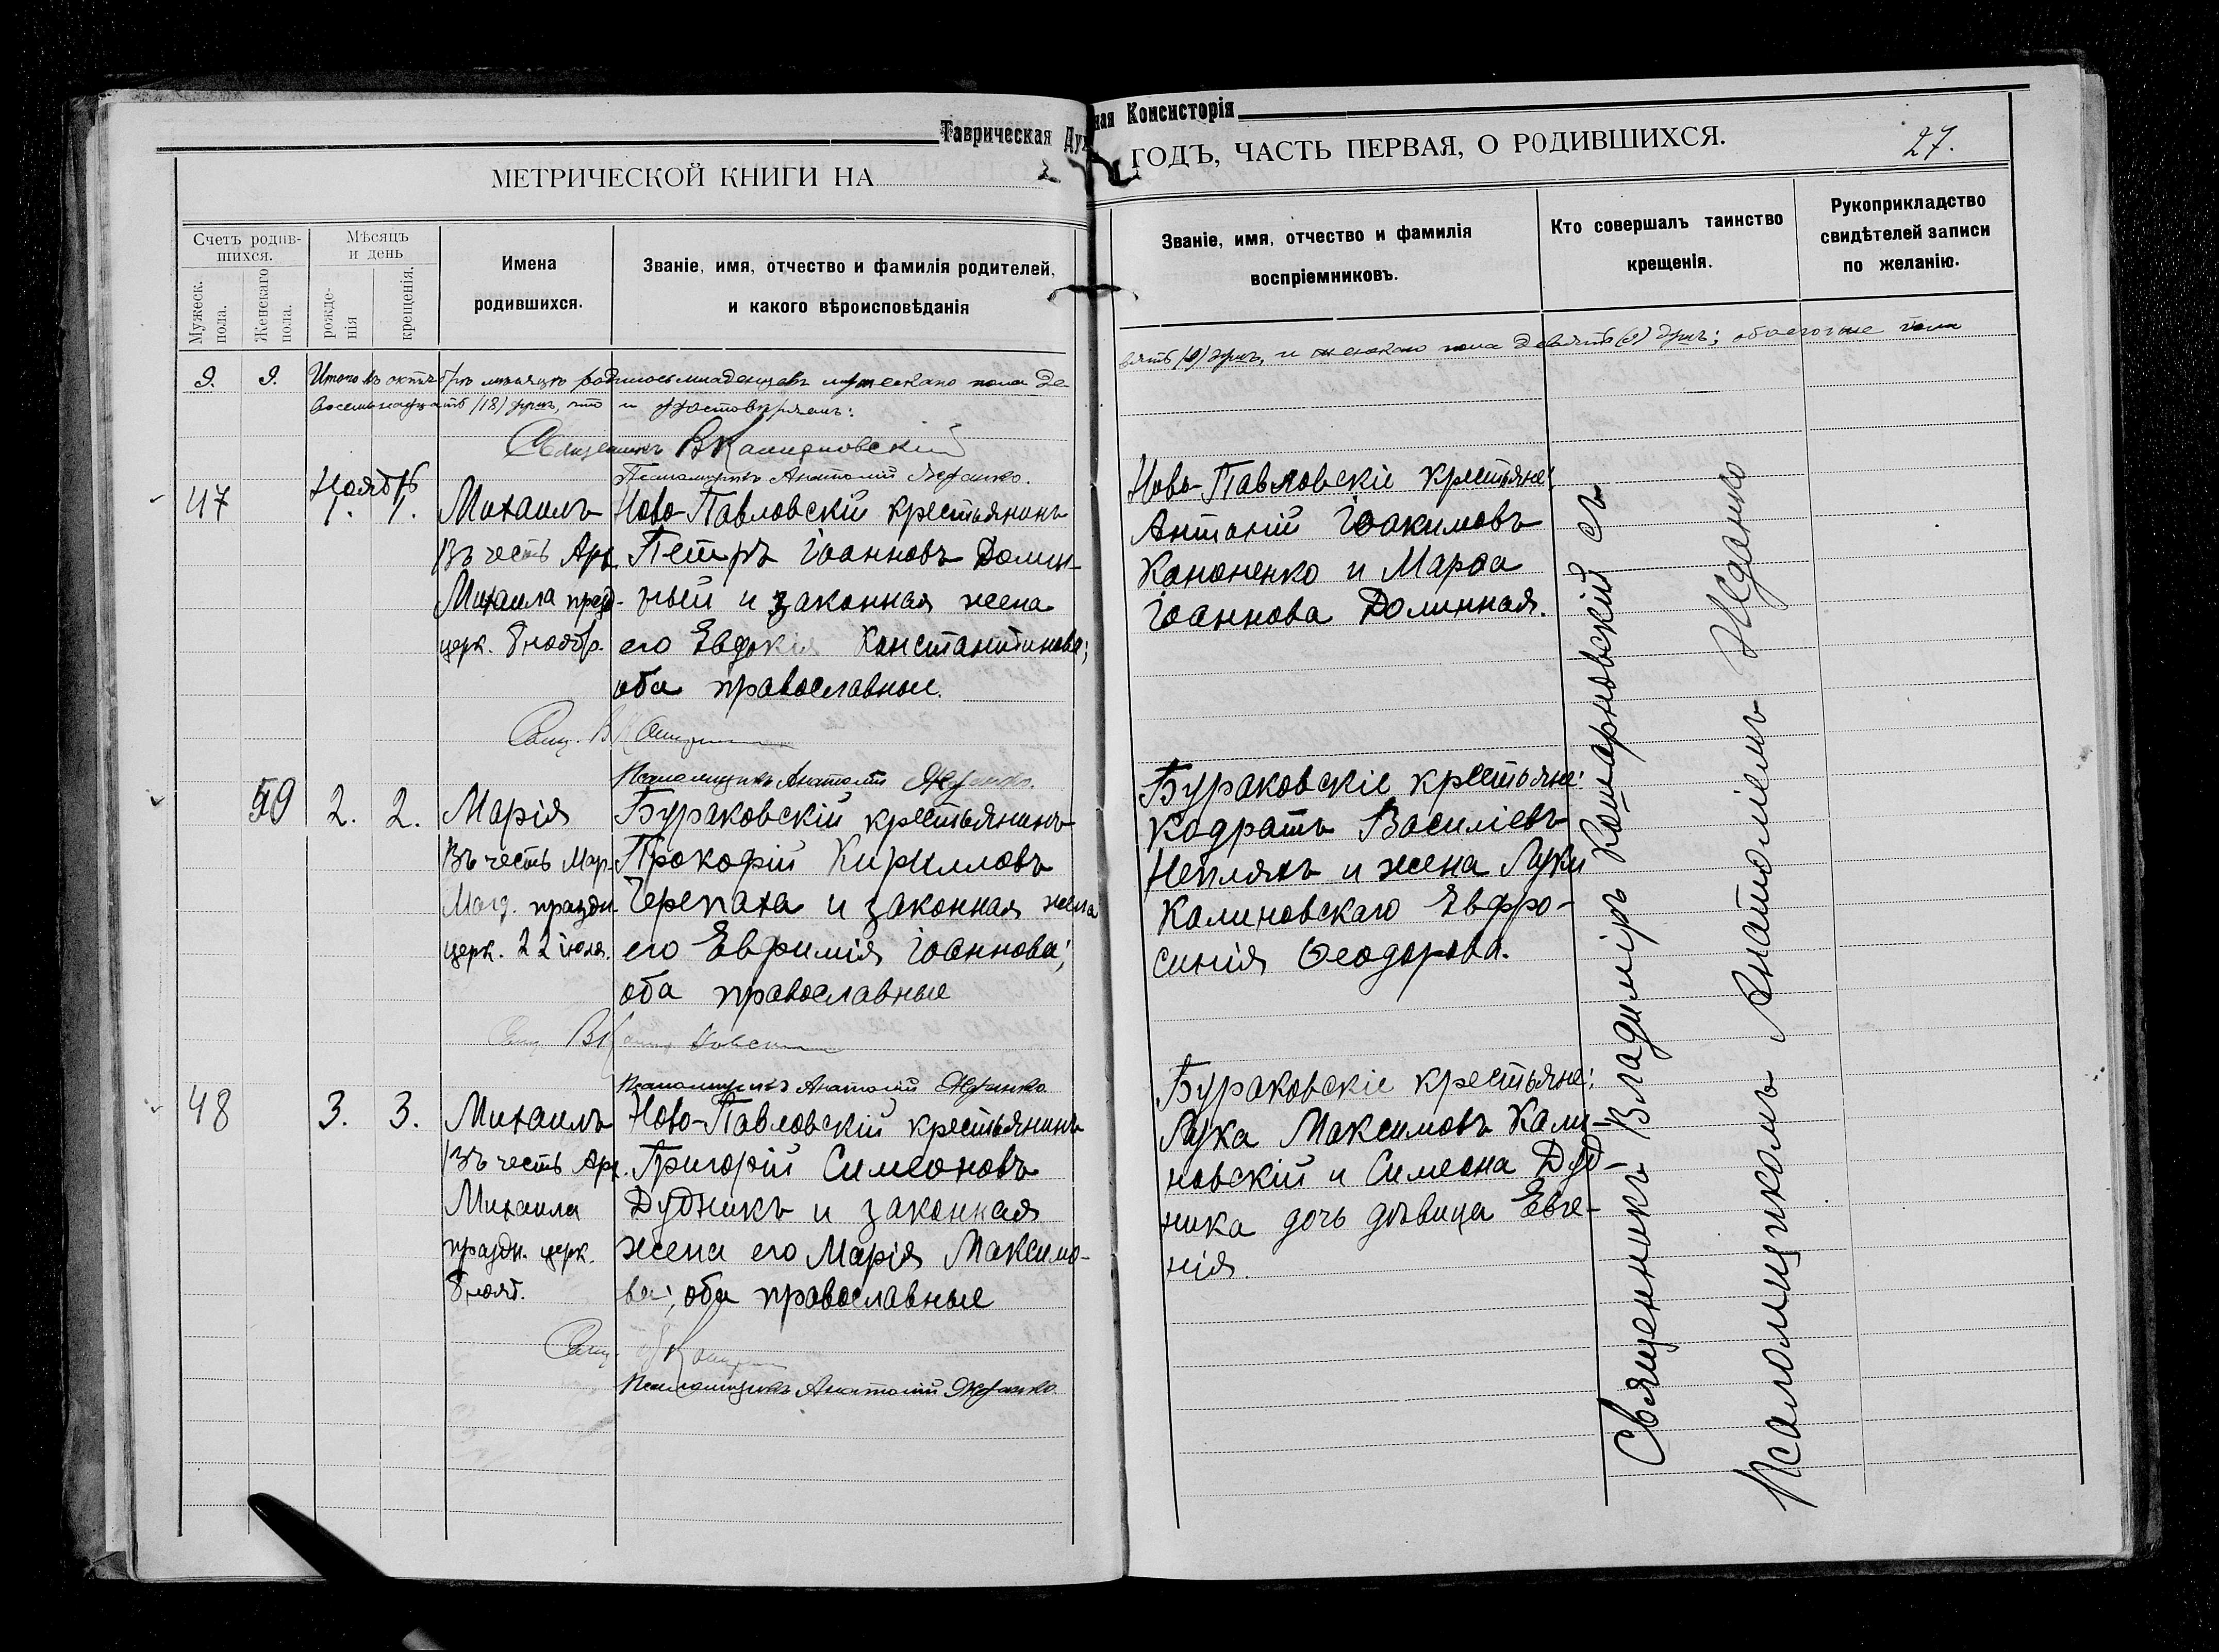 Таврическая Дух
МЕТРИЧЕСКОЙ КНИГИ НА
Счетъ родив-
шихся.
Мѣсяцъ
и день
Мужеск.
пола.
Женскаго
пола.
рожде-
нія
крещенія.
Имена
родившихся.
Званіе, имя, отчество и фамилія родителей,
и какого вѣроисповѣданія
9. 9. Итого въ октябрѣ мѣсяцѣ родилось младенцевъ мужескаго пола де-
восемнадцать (18) душъ, что и удостовѣряемъ:
Священникъ В Комарновскій
Псаломщикъ Анатолій Жданко.
Ноябрь
47 1. 1. Михаилъ Ново-Павловскій крестьянинъ
Въ честь Арх. Петръ Іоанновъ Долин-
Михаила празд. ный и законная жена
церк. 8 ноябр. его Евдокія Константинова;
оба православные.
Свящ. В Комарн
Псаломщикъ Анатолій Жданко.
59 2. 2. Марія Бураковскій крестьянинъ
Въ честь Мар. Прокофій Кирилловъ
Магд. праздн. Черепаха и законная жена
церк. 22 іюля. его Евфимія Іоаннова;
оба православные
Свящ. В Комарновскій
Псаломщикъ Анатолій Жданко
48 3. 3. Михаилъ Ново-Павловскій крестьянинъ
Въ честь Арх. Григорій Симеоновъ
Михаила Дудникъ и законная
праздн. церк. жена его Марія Максимо-
8 нояб. ва; оба православные
Свящ. В Комарн
Псаломщикъ Анатолій Жданко
ная Консисторія
ГОДЪ, ЧАСТЬ ПЕРВАЯ, О РОДИВШИХСЯ.
27.
Званіе, имя, отчество и фамилія
воспріемниковъ.
Кто совершалъ таинство
крещенія.
Рукоприкладство
свидѣтелей записи
по желанію.
вять (9) душъ, и женскаго пола девять (9) душъ; обоего же пола
Ново-Павловскіе крестьяне:
Антоній Іоакимовъ
Кононенко и Марѳа
Іоаннова Долинная.
Бураковскіе крестьяне:
Кодратъ Василіевъ
Неплякъ и жена Луки
Калиновскаго Евфро-
синія Ѳеодорова.
Бураковскіе крестьяне:
Лука Максимовъ Кали-
новскій и Симеона Дуд-
ника дочь дѣвица Евге-
нія.
Священникъ Владиміръ Комарновскій съ
Псаломщикомъ Анатоліемъ Жданко